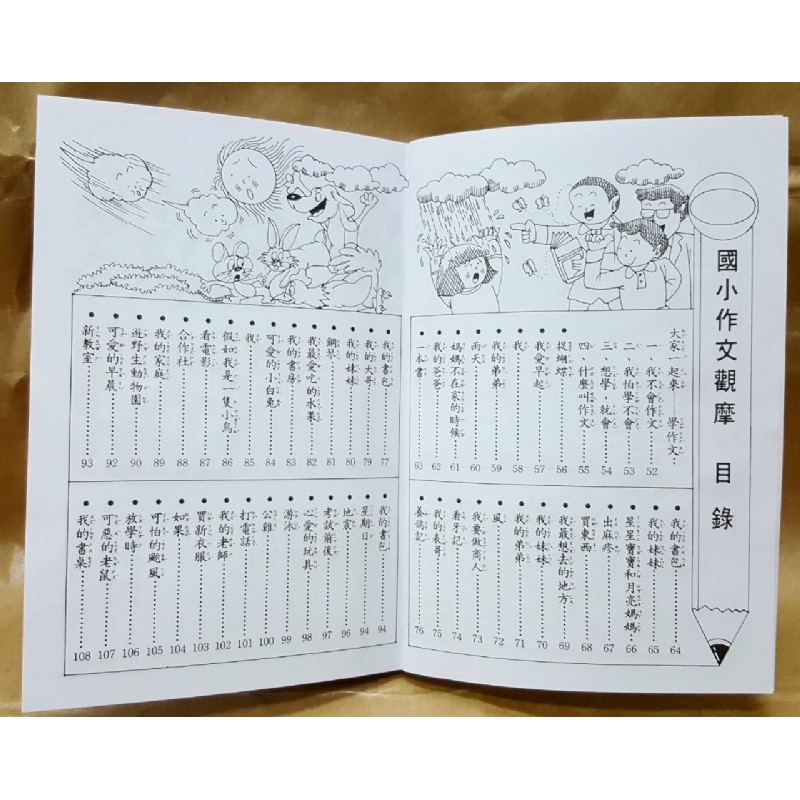 國小作文觀摩 目錄
大家一起來——學作文……
一、我不會作文……52
二、我怕學不會……53
三、想學，就會……54
四、什麼叫作文……55
捉蝴蝶……56
我愛早起……57
我……58
我的弟弟……59
雨天……60
媽媽不在家的時候……61
我的爸爸……62
一本書……63
我的書包……64
我的妹妹……65
星星寶寶和月亮媽媽……66
出麻疹……67
買東西……68
我最想去的地方……69
我的妹妹……70
我的弟弟……71
風……72
我要做商人……73
看牙記……74
我的表哥……75
養鴿記……76
我的書包……77
我的大哥……79
我的妹妹……80
鋼琴……81
我最愛吃的水果……82
我的書房……83
可愛的小白兔……84
我……85
假如我是一隻小鳥……86
看電影……87
合作社……88
我的家庭……89
遊野生動物園……90
可愛的早晨……92
新教室……93
我的書包……94
星期日……94
地震……96
考試前後……97
心愛的玩具……98
游泳……99
公雞……100
打電話……101
我的老師……102
買新衣服……103
如果……104
可怕的颱風……105
放學時……106
可惡的老鼠……107
我的書桌……108